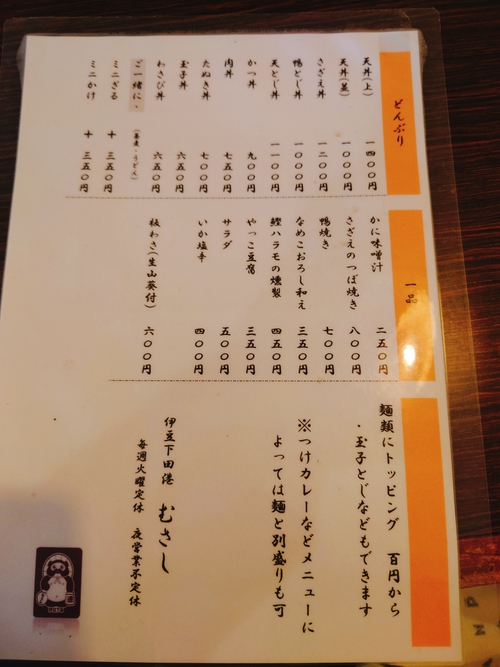 どんぶり
天丼(上) 一四〇〇円
天丼(並) 一〇〇〇円
さざえ丼 一二〇〇円
鴨とじ丼 一〇〇〇円
天とじ丼 一一〇〇円
かつ丼 九〇〇円
肉丼 七五〇円
たぬき丼 七〇〇円
玉子丼 六五〇円
わさび丼 六五〇円
ご一緒に・ (蕎麦・うどん)
ミニざる 十 三五〇円
ミニかけ 十 三五〇円
一品
かに味噌汁 二五〇円
さざえのつぼ焼き 八〇〇円
鴨焼き 七〇〇円
なめこおろし和え 三五〇円
鰹ハラモの燻製 四五〇円
やっこ豆腐 三五〇円
サラダ 五〇〇円
いか塩辛 四〇〇円
板わさ(生山葵付) 六〇〇円
麺類にトッピング 百円から
・玉子とじなどもできます
※つけカレーなどメニューに
よっては麺と別盛りも可
伊豆下田港 むさし
毎週火曜定休 夜営業不定休